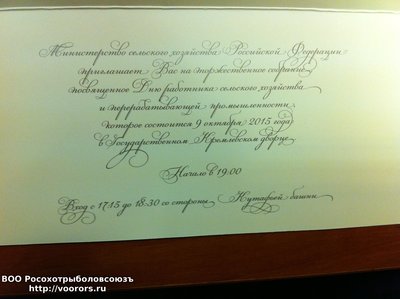 Министерство сельского хозяйства Российской Федерации
приглашает Вас на торжественное собрание,
посвященное Дню работника сельского хозяйства
и перерабатывающей промышленности,
которое состоится 9 октября 2015 года
в Государственном Кремлевском дворце
Начало в 19.00
Вход с 17.15 до 18-30 со стороны Кутафьей башни
ВОО Росохотрыболовсоюзъ
http://voorors.ru